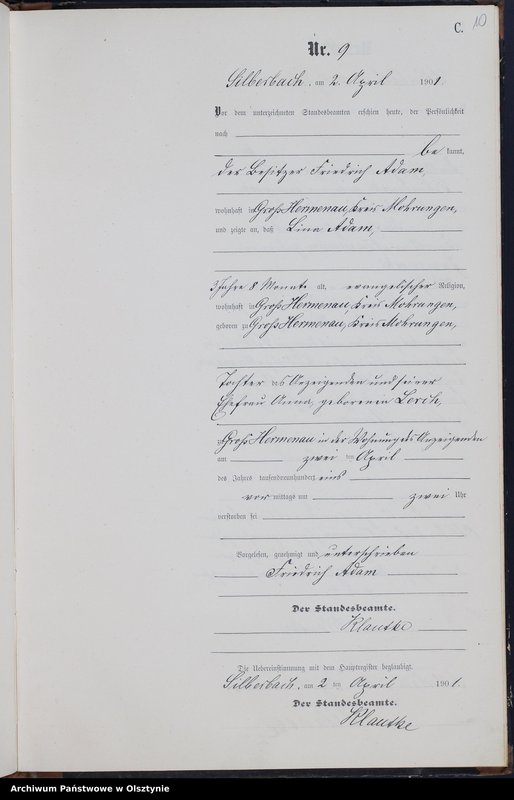 C. 10
Nr. 9
Silberbach, am 2. April 1901.
Vor dem unterzeichneten Standesbeamten erschien heute, der Persönlichkeit
nach
bekannt,
der Besitzer Friedrich Adam,
wohnhaft in Groß Hermenau, Kreis Mohrungen,
und zeigte an, daß Lina Adam,
3 Jahre 8 Monate alt, evangelischer Religion,
wohnhaft in Groß Hermenau, Kreis Mohrungen,
geboren zu Groß Hermenau, Kreis Mohrungen,
Tochter des Anzeigenden und seiner
Ehefrau Anna, geborenen Lorch,
zu Groß Hermenau in der Wohnung des Anzeigenden
am zwei ten April
des Jahres tausendneunhundert eins
vor mittags um zwei Uhr
verstorben sei
Vorgelesen, genehmigt und unterschrieben
Friedrich Adam
Der Standesbeamte.
Klautke
Die Uebereinstimmung mit dem Hauptregister beglaubigt.
Silberbach, am 2 ten April 1901.
Der Standesbeamte.
Klautke
Archiwum Państwowe w Olsztynie